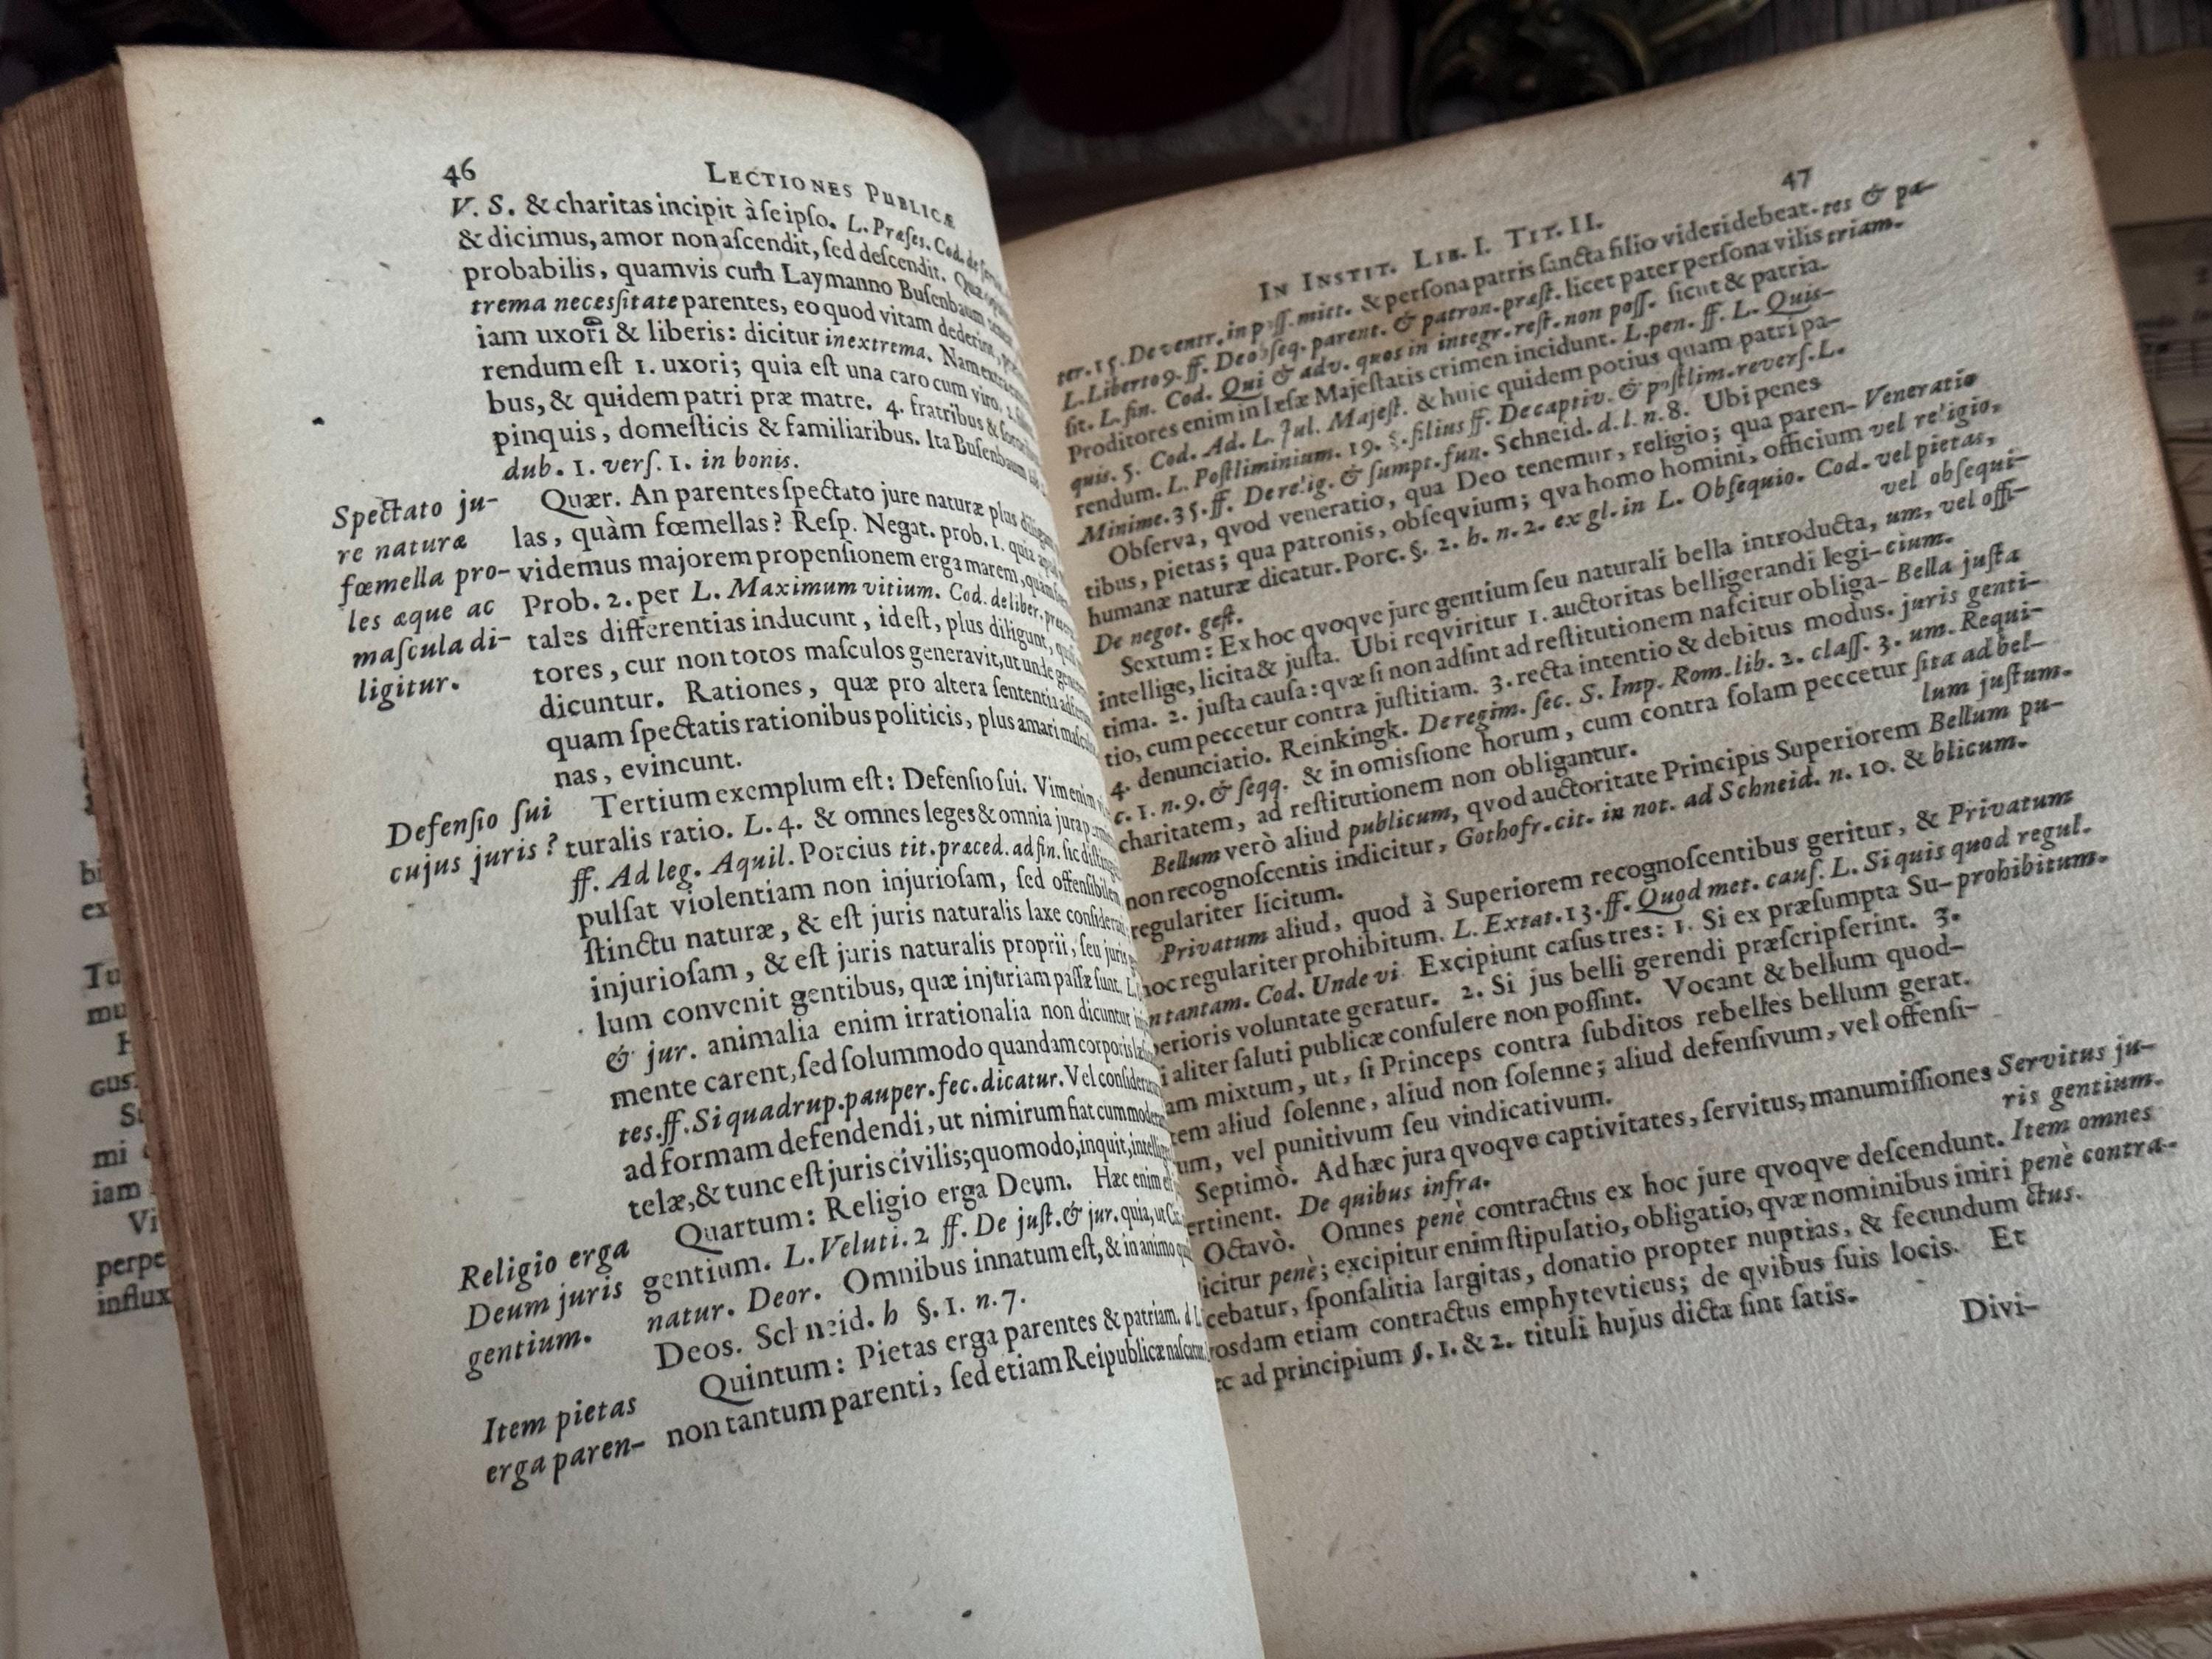 46
LECTIONES PUBLICÆ
V. S. & charitas incipit à ſe ipſo. L. Præſes. Cod. de
& dicimus, amor non aſcendit, ſed deſcendit. Quæ
probabilis, quamvis cum Laymanno Buſenbaum
trema neceſſitate parentes, eo quod vitam dederint,
iam uxori & liberis: dicitur in extrema. Nam extra
rendum eſt 1. uxori; quia eſt una caro cum viro. 2.
bus, & quidem patri præ matre. 4. fratribus &
pinquis, domeſticis & familiaribus. Ita Buſenbaum
dub. 1. verſ. 1. in bonis.
Spectato ju-
re naturæ
fœmella pro-
les æque ac
maſcula di-
ligitur.
Quær. An parentes ſpectato jure naturæ plus
las, quàm fœmellas? Reſp. Negat. prob. 1. quia
videmus majorem propenſionem erga marem, quam
Prob. 2. per L. Maximum vitium. Cod. de liber.
tales differentias inducunt, id eſt, plus diligunt,
tores, cur non totos maſculos generavit, ut unde
dicuntur. Rationes, quæ pro altera ſententia
quam ſpectatis rationibus politicis, plus amari
nas, evincunt.
Defenſio ſui
cujus juris?
Tertium exemplum eſt: Defenſio ſui. Vim enim
turalis ratio. L. 4. & omnes leges & omnia jura
ff. Ad leg. Aquil. Porcius tit. præced. ad fin. ſic
pulſat violentiam non injurioſam, ſed offenſibilem
ſtinctu naturæ, & eſt juris naturalis laxe
injurioſam, & eſt juris naturalis proprii, ſeu juris
lum convenit gentibus, quæ injuriam paſſæ ſunt. L.
& jur. animalia enim irrationalia non dicuntur
mente carent, ſed ſolummodo quandam corporis
tes. ff. Si quadrup. pauper. fec. dicatur. Vel
ad formam defendendi, ut nimirum fiat cum
telæ, & tunc eſt juris civilis; quomodo, inquit,
Religio erga
Deum juris
gentium.
Quartum: Religio erga Deum. Hæc enim
gentium. L. Veluti. 2 ff. De juſt. & jur. quia, ut
natur. Deor. Omnibus innatum eſt, & in animo
Deos. Schneid. h §. 1. n. 7.
Item pietas
erga paren-
Quintum: Pietas erga parentes & patriam. d
non tantum parenti, ſed etiam Reipublicæ
47
IN INSTIT. LIB. I. TIT. II.
ter. 15. De ventr. in poſſ. mitt. & perſona patris ſancta filio videri debeat.
L. Liberto 9. ff. De obſeq. parent. & patron. præſt. licet pater perſona vilis
ſit. L. fin. Cod. Qui & adv. quos in integr. reſt. non poſſ. ſicut & patria.
Proditores enim in læſæ Majeſtatis crimen incidunt. L. pen. ff. L. Quis-
quis. 5. Cod. Ad. L. Jul. Majeſt. & huic quidem potius quam patri pa-
rendum. L. Poſtliminium. 19. §. filius ff. De captiv. & poſtlim. reverſ. L.
Minime. 35. ff. De relig. & ſumpt. fun. Schneid. d. l. n. 8. Ubi penes
tes & pa-
triam.
Obſerva, qvod veneratio, qua Deo tenemur, religio; qua paren-
tibus, pietas; qua patronis, obſeqvium; qva homo homini, officium
humanæ naturæ dicatur. Porc. §. 2. h. n. 2. ex gl. in L. Obſequio. Cod.
De negot. geſt.
Veneratio
vel religio,
vel pietas,
vel obſequi-
um, vel offi-
cium.
Sextum: Ex hoc qvoqve jure gentium ſeu naturali bella introducta,
intellige, licita & juſta. Ubi reqviritur 1. auctoritas belligerandi legi-
tima. 2. juſta cauſa: qvæ ſi non adſint ad reſtitutionem naſcitur obliga-
tio, cum peccetur contra juſtitiam. 3. recta intentio & debitus modus.
4. denunciatio. Reinkingk. De regim. ſec. S. Imp. Rom. lib. 2. claſſ. 3.
c. 1. n. 9. & ſeqq. & in omiſſione horum, cum contra ſolam peccetur
charitatem, ad reſtitutionem non obligantur.
Bella juſta
juris genti-
um. Requi-
ſita ad bel-
lum juſtum.
Bellum verò aliud publicum, qvod auctoritate Principis Superiorem
non recognoſcentis indicitur, Gothofr. cit. in not. ad Schneid. n. 10. &
regulariter licitum.
Bellum pu-
blicum.
Privatum aliud, quod à Superiorem recognoſcentibus geritur, &
hoc regulariter prohibitum. L. Extat. 13. ff. Quod met. cauſ. L. Si quis
tantam. Cod. Unde vi. Excipiunt caſus tres: 1. Si ex præſumpta Su-
perioris voluntate geratur. 2. Si jus belli gerendi præſcripſerint. 3.
i aliter ſaluti publicæ conſulere non poſſint. Vocant & bellum quod-
am mixtum, ut, ſi Princeps contra ſubditos rebelles bellum gerat.
tem aliud ſolenne, aliud non ſolenne; aliud defenſivum, vel offenſi-
um, vel punitivum ſeu vindicativum.
Privatum
quod regul.
prohibitum.
Septimò. Ad hæc jura qvoqve captivitates, ſervitus, manumiſſiones
ertinent. De quibus infra.
Servitus ju-
ris gentium.
Octavò. Omnes penè contractus ex hoc jure qvoqve deſcendunt.
icitur penè; excipitur enim ſtipulatio, obligatio, qvæ nominibus iniri
cebatur, ſponſalitia largitas, donatio propter nuptias, & ſecundum
rosdam etiam contractus emphytevticus; de qvibus ſuis locis. Et
ec ad principium §. 1. & 2. tituli hujus dicta ſint ſatis.
Item omnes
penè contra-
ctus.
Divi-